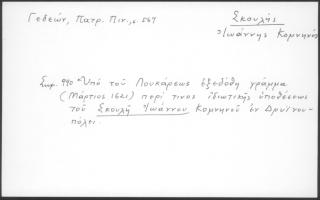 Γεδεών, Πατρ. Πιν., σ. 567
Σκουλής
Ἰωάννης Κομνηνός
Σημ. 990 "Ὑπό τοῦ Λουκάρεως ἐξεδόθη γράμμα
(Μάρτιος 1621) περί τινος ἰδιωτικῆς ὑποθέσεως
τοῦ Σκουλῆ Ἰωάννου Κομνηνοῦ ἐν Δρυϊνου-
πόλει.